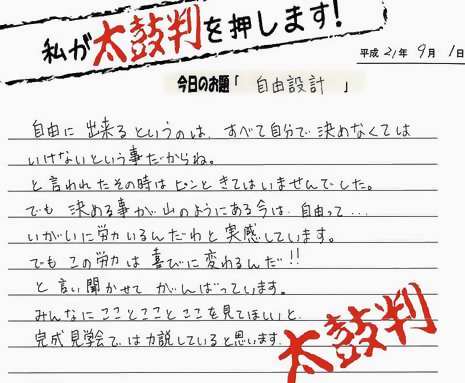 私が太鼓判を押します!
平成21年9月1日
今日のお題「自由設計」
自由に出来るというのは、すべて自分で決めなくては
いけないという事だからね。
と言われたその時はピンときてはいませんでした。
でも 決める事が山のようにある今は、自由って…
いがいに労力いるんだわと実感しています。
でもこの労力は喜びに変わるんだ!!
と言い聞かせてがんばっています。
みんなにこことこことここを見てほしいと、
完成見学会では力説していると思います。
太鼓判